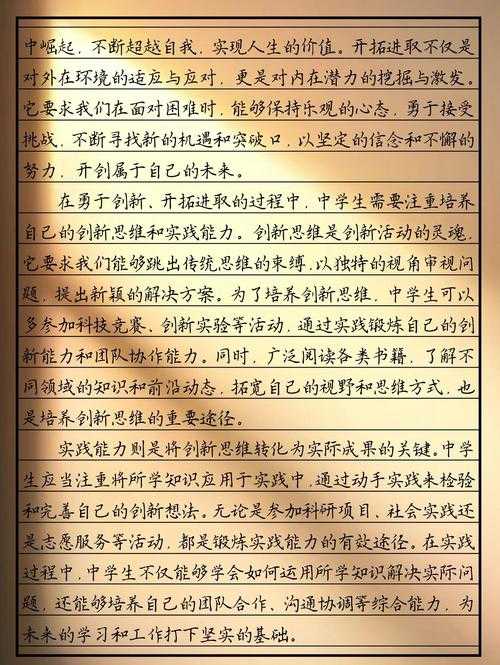 中崛起，不断超越自我，实现人生的价值。开拓进取不仅是
对外在环境的适应与应对，更是对内在潜力的挖掘与激发。
它要求我们在面对困难时，能够保持乐观的心态，勇于接受
挑战，不断寻找新的机遇和突破口，以坚定的信念和不懈的
努力，开创属于自己的未来。
在勇于创新、开拓进取的过程中，中学生需要注重培养
自己的创新思维和实践能力。创新思维是创新活动的灵魂，
它要求我们能够跳出传统思维的束缚，以独特的视角审视问
题，提出新颖的解决方案。为了培养创新思维，中学生可以
多参加科技竞赛、创新实验等活动，通过实践锻炼自己的创
新能力和团队协作能力。同时，广泛阅读各类书籍，了解不
同领域的知识和前沿动态，拓宽自己的视野和思维方式，也
是培养创新思维的重要途径。
实践能力则是将创新思维转化为实际成果的关键。中学
生应当注重将所学知识应用于实践中，通过动手实践来检验
和完善自己的创新想法。无论是参加科研项目、社会实践还
是志愿服务等活动，都是锻炼实践能力的有效途径。在实践
过程中，中学生不仅能够学会如何运用所学知识解决实际问
题，还能够培养自己的团队合作、沟通协调等综合能力，为
未来的学习和工作打下坚实的基础。